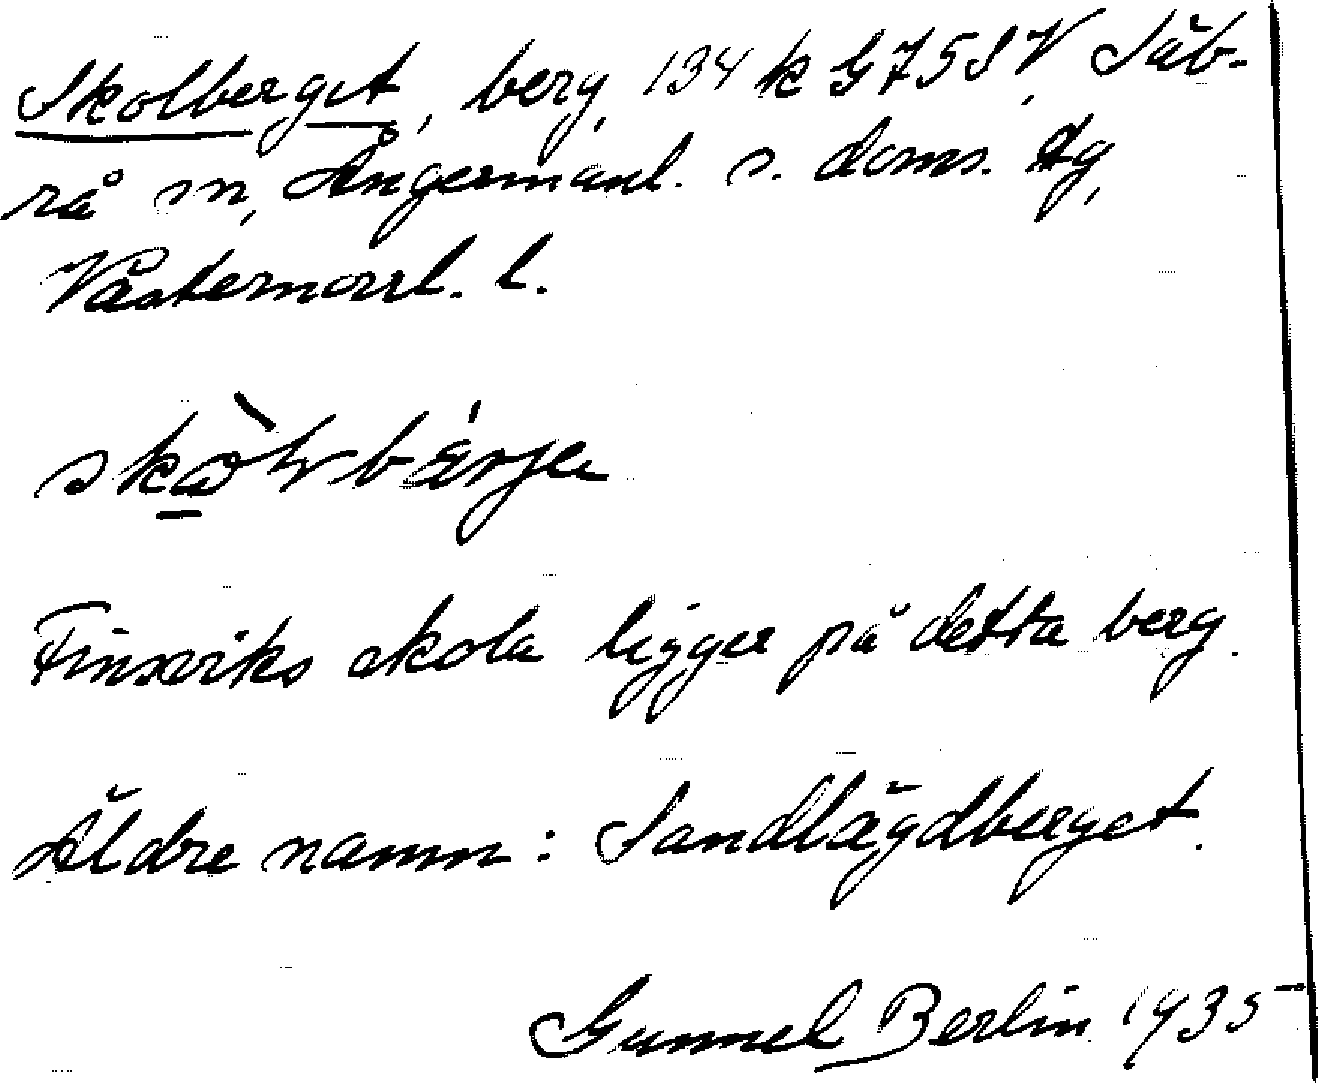 Skolberget, berg, 134 k G 75 SV, Säb-
rå sn, Ångermanl. s. doms. tg,
Västernorrl. l.
Finsviks skola ligger på detta berg.
Äldre namn: Sandlägdberget.
Gunnel Berlin 1935